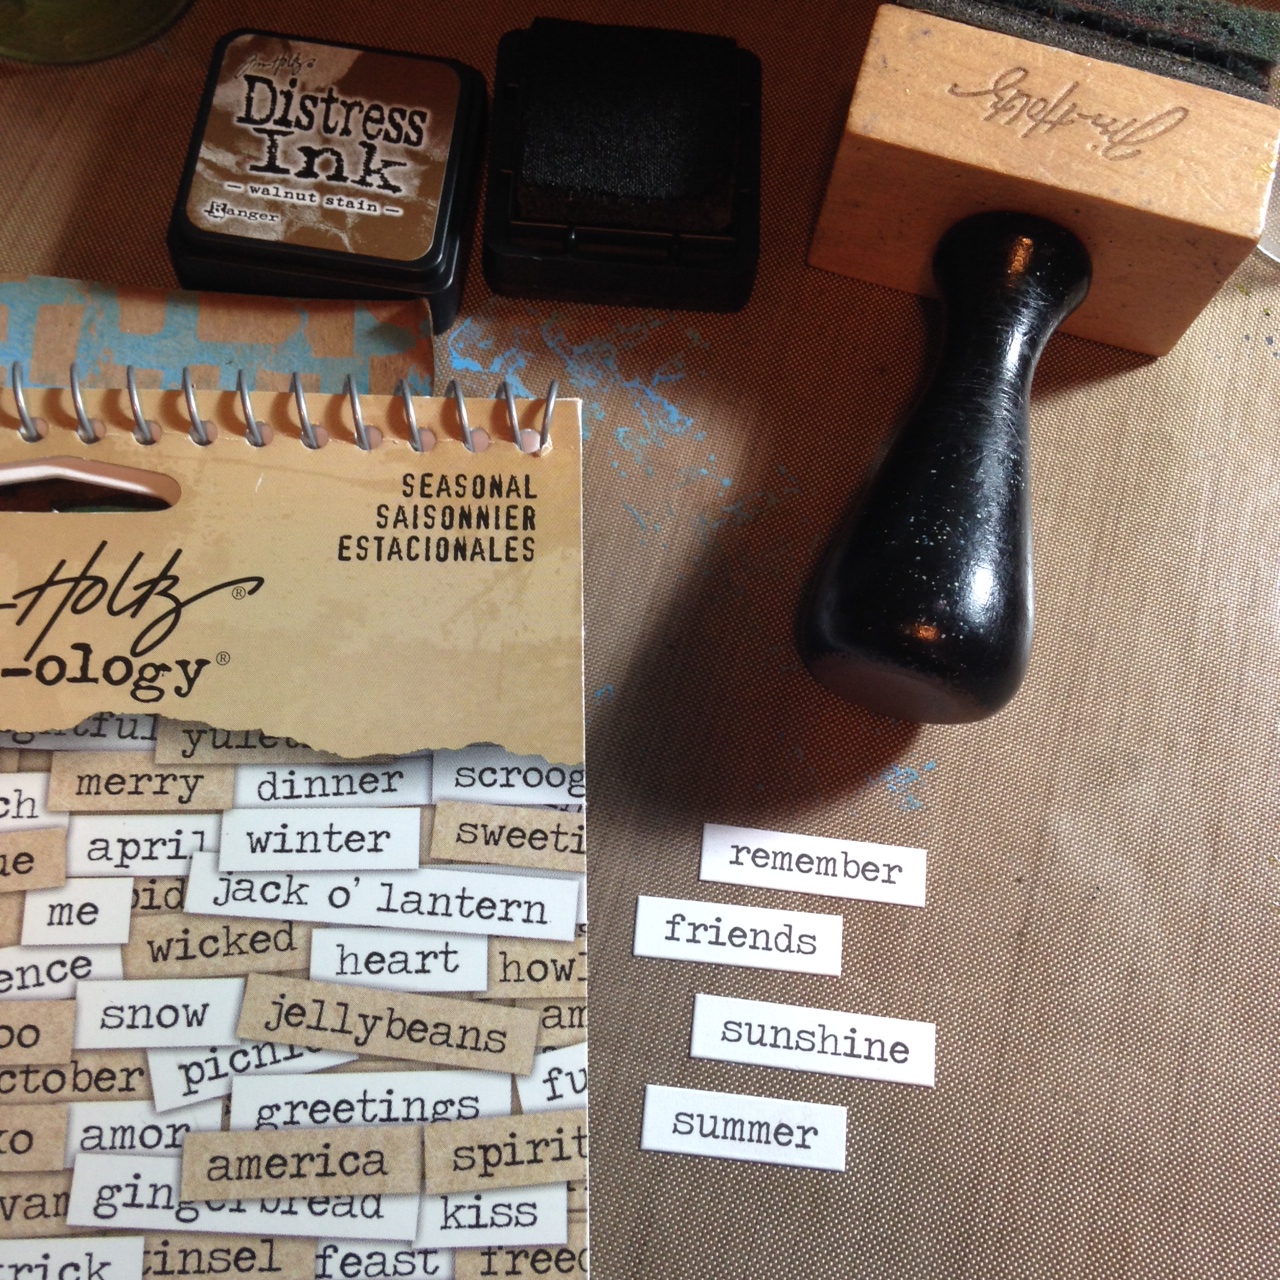 Tim Holtz
Distress
Ink
— walnut stain —
Ranger
Tim Holtz
SEASONAL
SAISONNIER
ESTACIONALES
Holtz®
-ology®
merry dinner scroog
ch
april winter sweeti
ue
me jack o' lantern
wicked heart howl
ence
snow jellybeans am
oo
ctober picnic fu
greetings
xo amor
america spirit
van gingerbread kiss
rick tinsel feast freed
remember
friends
sunshine
summer